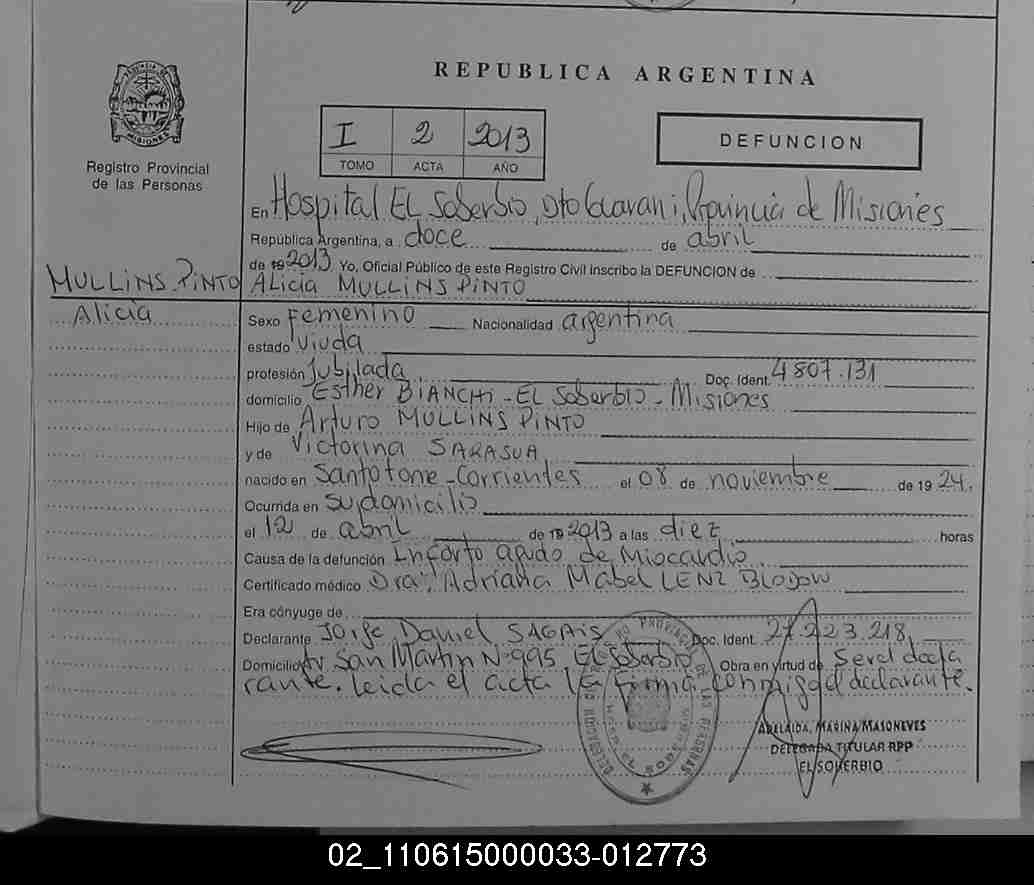 REPUBLICA ARGENTINA
PROVINCIA DE MISIONES
Registro Provincial
de las Personas
I 2 2013
TOMO ACTA AÑO
DEFUNCION
En Hospital EL Soberbio, Dto Guarani, Provincia de Misiones
República Argentina, a doce de abril
de 19 2013 Yo, Oficial Público de este Registro Civil inscribo la DEFUNCION de
MULLINS PINTO
Alicia
ALicia MULLINS PINTO
Sexo Femenino Nacionalidad argentina
estado Viuda
profesión Jubilada Doc. Ident. 4 807.131
domicilio Esther BIANCHi - EL Soberbio - Misiones
Hijo de Arturo MULLINS PINTO
y de Victorina SARASUA
nacido en Santo Tome - Corrientes el 08 de noviembre de 19 24.
Ocurrida en su domicilio
el 12 de abril de 19 2013 a las diez horas
Causa de la defunción Infarto agudo de Miocardio
Certificado médico Dra. Adriana Mabel LENZ BLODOW
Era cónyuge de
Declarante Jorge Daniel SAGAIS Doc. Ident. 27.223.218
Domicilio Av San Martin N 995 El Soberbio Obra en virtud de Ser el decla
rante. Leida el acta la Firma conmigo el declarante.
ADELAIDA, MARINA MASONEVES
DELEGADA TITULAR RPP
EL SOBERBIO
02_110615000033-012773